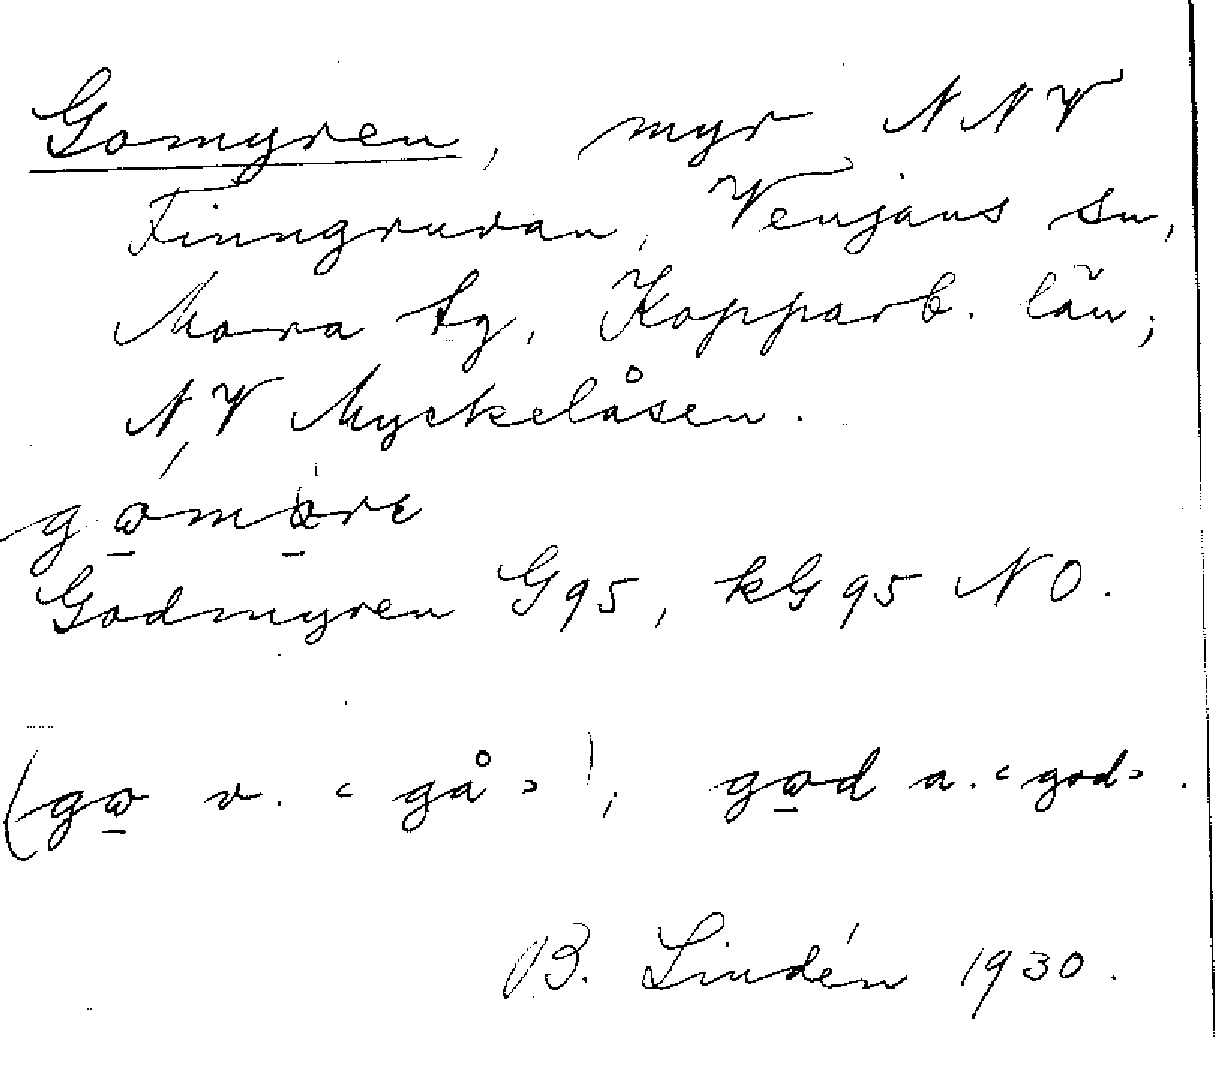 Gomyren, myr NNV
Finngruvan, Venjans sn,
Mora tg, Kopparb. län;
N,V Myckelåsen.
Godmyren G95, kG95 NO.
(gω̱ v. ‹ gå › !, gω̱d a. ‹ god › .
B. Lindén 1930.